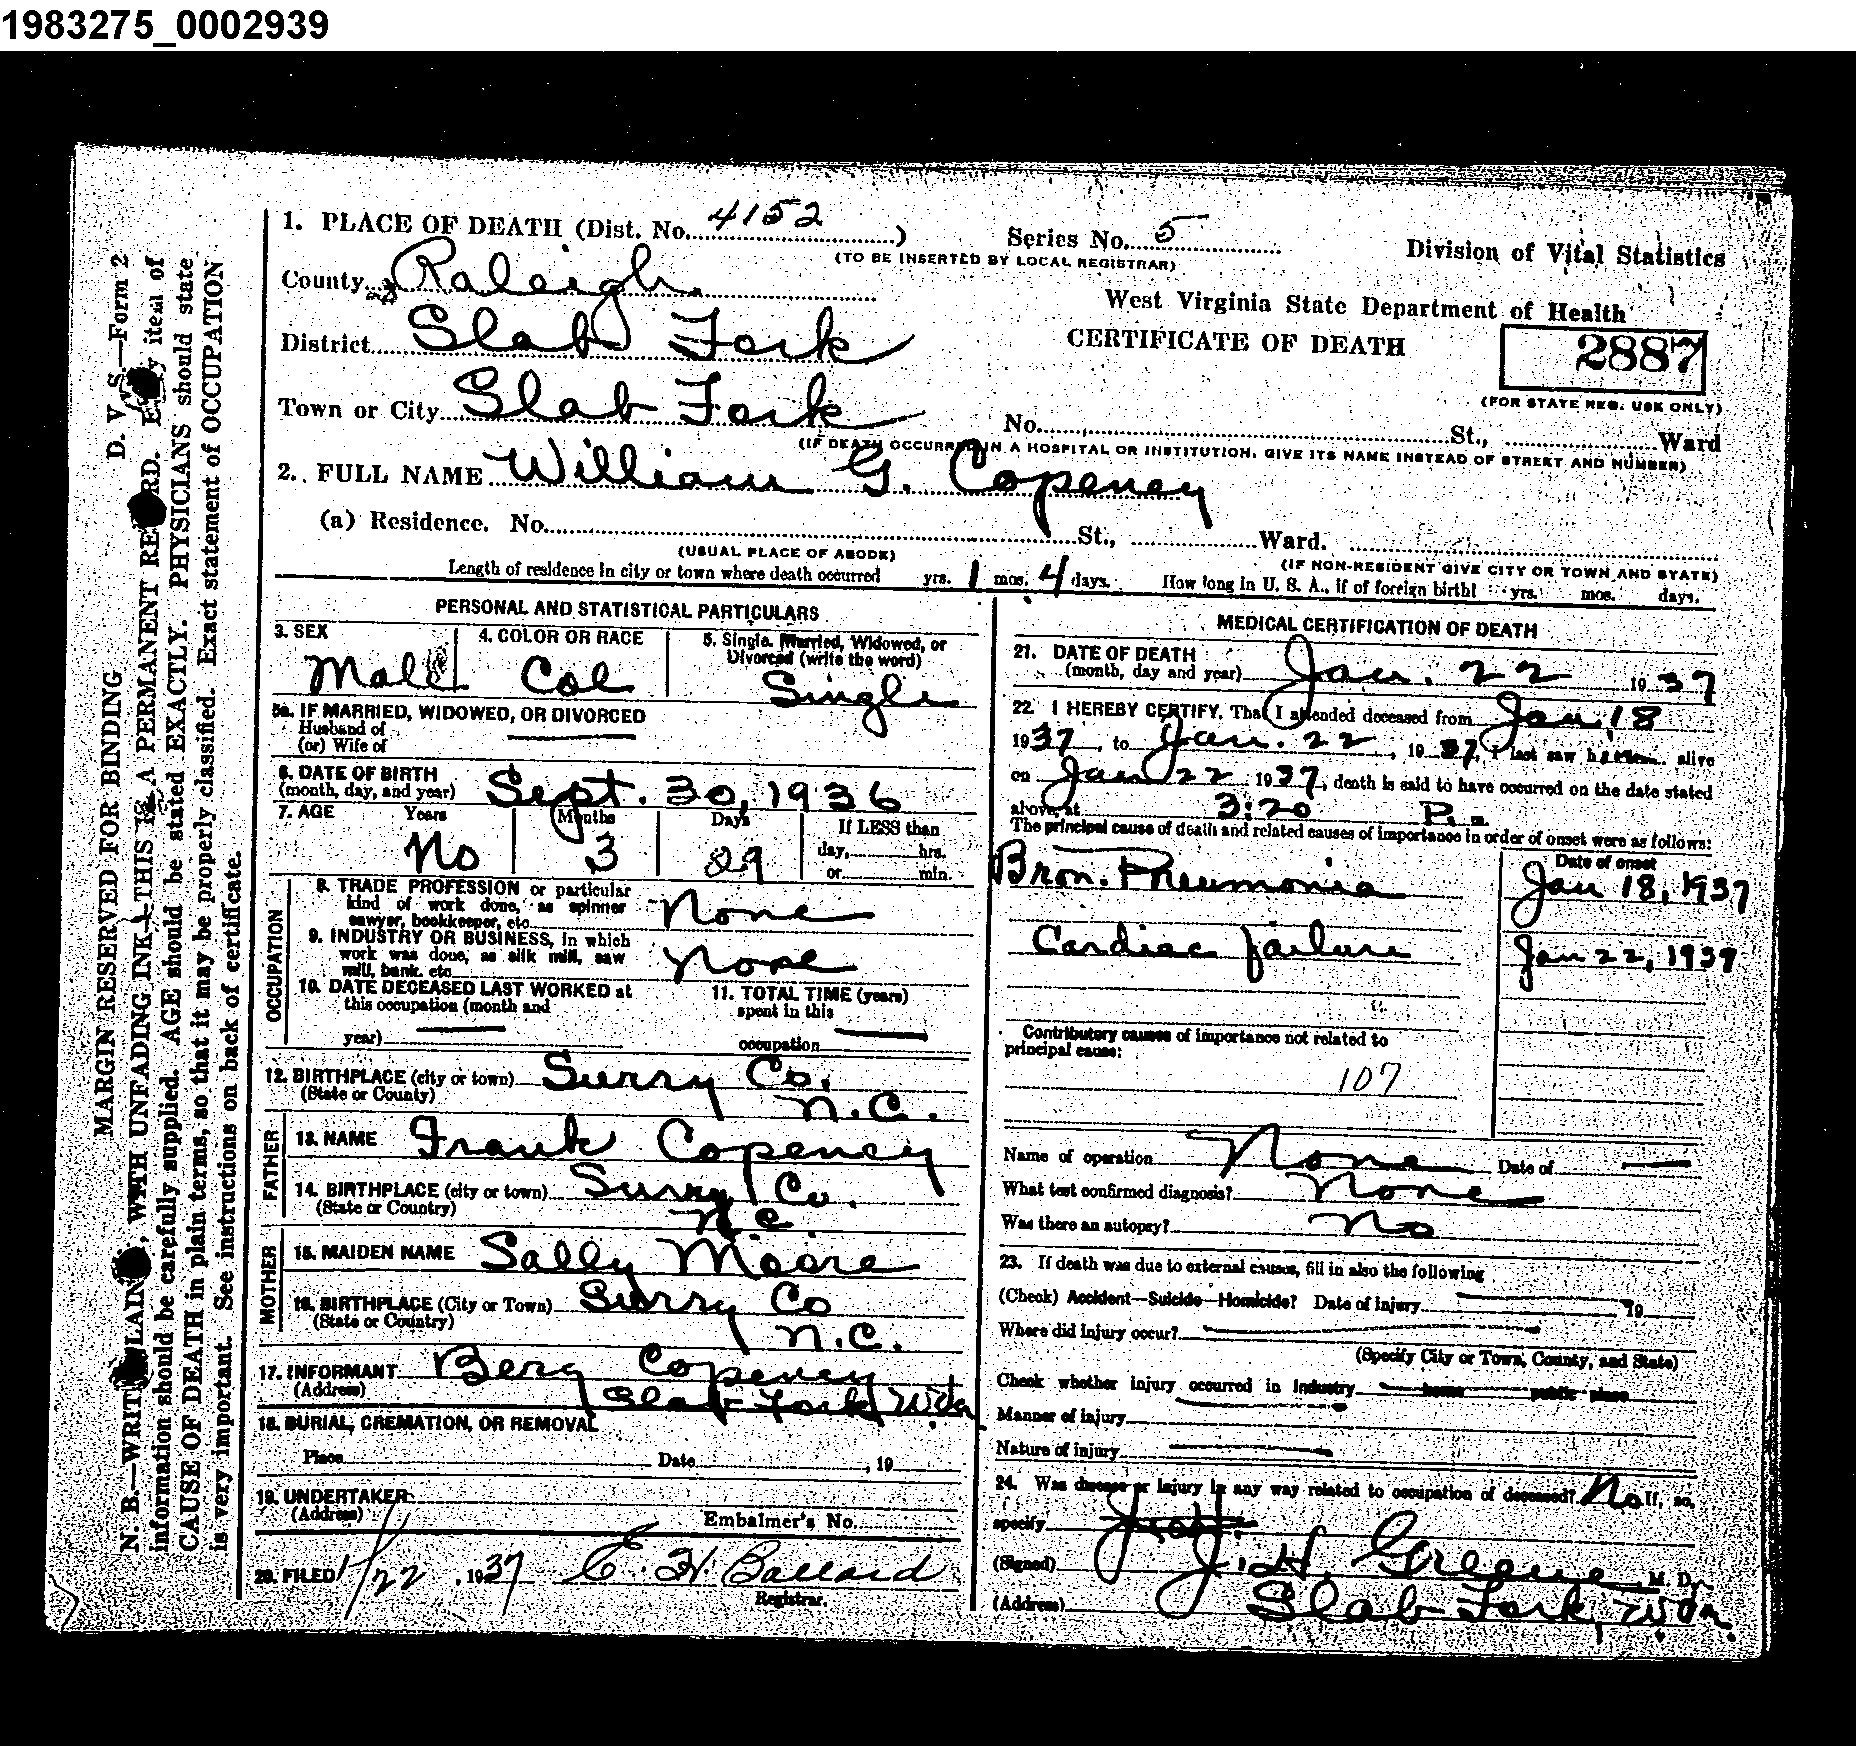 1983275_0002939
1. PLACE OF DEATH (Dist. No. 4152 )
Series No. 5
Division of Vital Statistics
(TO BE INSERTED BY LOCAL REGISTRAR)
County Raleigh
West Virginia State Department of Health
District Slab Fork
CERTIFICATE OF DEATH
2887
(FOR STATE REG. USE ONLY)
Town or City Slab Fork
No. St., Ward
(IF DEATH OCCURRED IN A HOSPITAL OR INSTITUTION, GIVE ITS NAME INSTEAD OF STREET AND NUMBER)
2. FULL NAME William G. Copeney
(a) Residence. No. St., Ward.
(USUAL PLACE OF ABODE)
(IF NON-RESIDENT GIVE CITY OR TOWN AND STATE)
Length of residence in city or town where death occurred yrs. 1 mos. 4 days. How long in U. S. A., if of foreign birth? yrs. mos. days.
PERSONAL AND STATISTICAL PARTICULARS
3. SEX
Male
4. COLOR OR RACE
Col
5. Single, Married, Widowed, or
Divorced (write the word)
Single
5a. IF MARRIED, WIDOWED, OR DIVORCED
Husband of
(or) Wife of
6. DATE OF BIRTH
(month, day, and year) Sept. 30, 1936
7. AGE Years Months Days If LESS than
No 3 29 day, hrs.
or min.
OCCUPATION
8. TRADE PROFESSION or particular
kind of work done, as spinner
sawyer, bookkeeper, etc. None
9. INDUSTRY OR BUSINESS, in which
work was done, as silk mill, saw
mill, bank, etc None
10. DATE DECEASED LAST WORKED at
this occupation (month and
year)
11. TOTAL TIME (years)
spent in this
occupation
12. BIRTHPLACE (city or town) Surry Co.
(State or County) N.C.
FATHER
13. NAME Frank Copeney
14. BIRTHPLACE (city or town) Surry Co.
(State or Country) N C
MOTHER
15. MAIDEN NAME Sally Moore
16. BIRTHPLACE (City or Town) Surry Co
(State or Country) N.C.
17. INFORMANT Berg Copeney
(Address) Slab Fork W.Va
18. BURIAL, CREMATION, OR REMOVAL
Place Date , 19
19. UNDERTAKER
(Address)
Embalmer's No.
20. FILED 1/22 , 1937 E. H. Ballard
Registrar.
MEDICAL CERTIFICATION OF DEATH
21. DATE OF DEATH
(month, day and year) Jan. 22 1937
22. I HEREBY CERTIFY, That I attended deceased from Jan 18
1937, to Jan. 22, 1937, I last saw him alive
on Jan 22 1937, death is said to have occurred on the date stated
above, at 3:20 P. m.
The principal cause of death and related causes of importance in order of onset were as follows:
Date of onset
Bron. Pneumonia Jan 18, 1937
Cardiac failure Jan 22, 1937
Contributory causes of importance not related to
principal cause:
107
Name of operation None Date of
What test confirmed diagnosis? None
Was there an autopsy? No
23. If death was due to external causes, fill in also the following
(Check) Accident—Suicide—Homicide? Date of injury 19
Where did injury occur?
(Specify City or Town, County, and State)
Check whether injury occurred in industry home public place
Manner of injury
Nature of injury
24. Was disease or injury in any way related to occupation of deceased? No If, so,
specify
(Signed) J. H. Greene M. D.
(Address) Slab Fork, W.Va.
D. V. S.—Form 2
MARGIN RESERVED FOR BINDING
N. B.—WRITE PLAINLY, WITH UNFADING INK—THIS IS A PERMANENT RECORD. Every item of
information should be carefully supplied. AGE should be stated EXACTLY. PHYSICIANS should state
CAUSE OF DEATH in plain terms, so that it may be properly classified. Exact statement of OCCUPATION
is very important. See instructions on back of certificate.